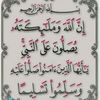 بِسْمِ اللَّهِ الرَّحْمَٰنِ الرَّحِيمِ
إِنَّ اللَّهَ وَمَلَٰئِكَتَهُ
يُصَلُّونَ عَلَى النَّبِيِّ
يَٰأَيُّهَا الَّذِينَ ءَامَنُوا صَلُّوا عَلَيْهِ
وَسَلِّمُوا تَسْلِيمًا